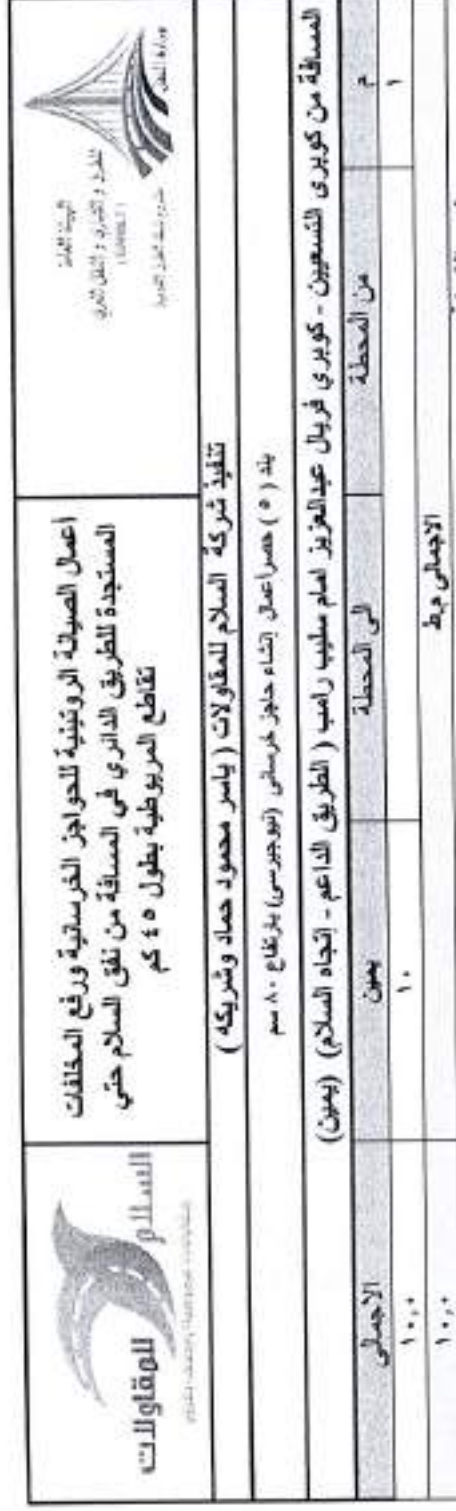 وزارة النقل
الهيئة العامة
للطرق و الكباري و النقل البري
أعمال الصيانة الروتينية للحواجز الخرسانية ورفع المخلفات
المستجدة للطريق الدائري في المسافة من نفق السلام حتي
تقاطع المريوطية بطول ٤٥ كم
السلام
للمقاولات
تنفيذ شركة السلام للمقاولات ( ياسر محمود حماد وشريكه )
بند ( ٥ ) حصر اعمال إنشاء حاجز خرسانى (نيوجيرسى) بارتفاع ٨٠ سم
المسافة من كوبرى التسعين - كوبري فريال عبدالعزيز امام سليب رامب ( الطريق الداعم - إتجاه السلام ) (يمين)
م من المحطة الى المحطة يمين الاجمالى
١ ١٠ ١٠,٠
الاجمالى م.ط ١٠,٠